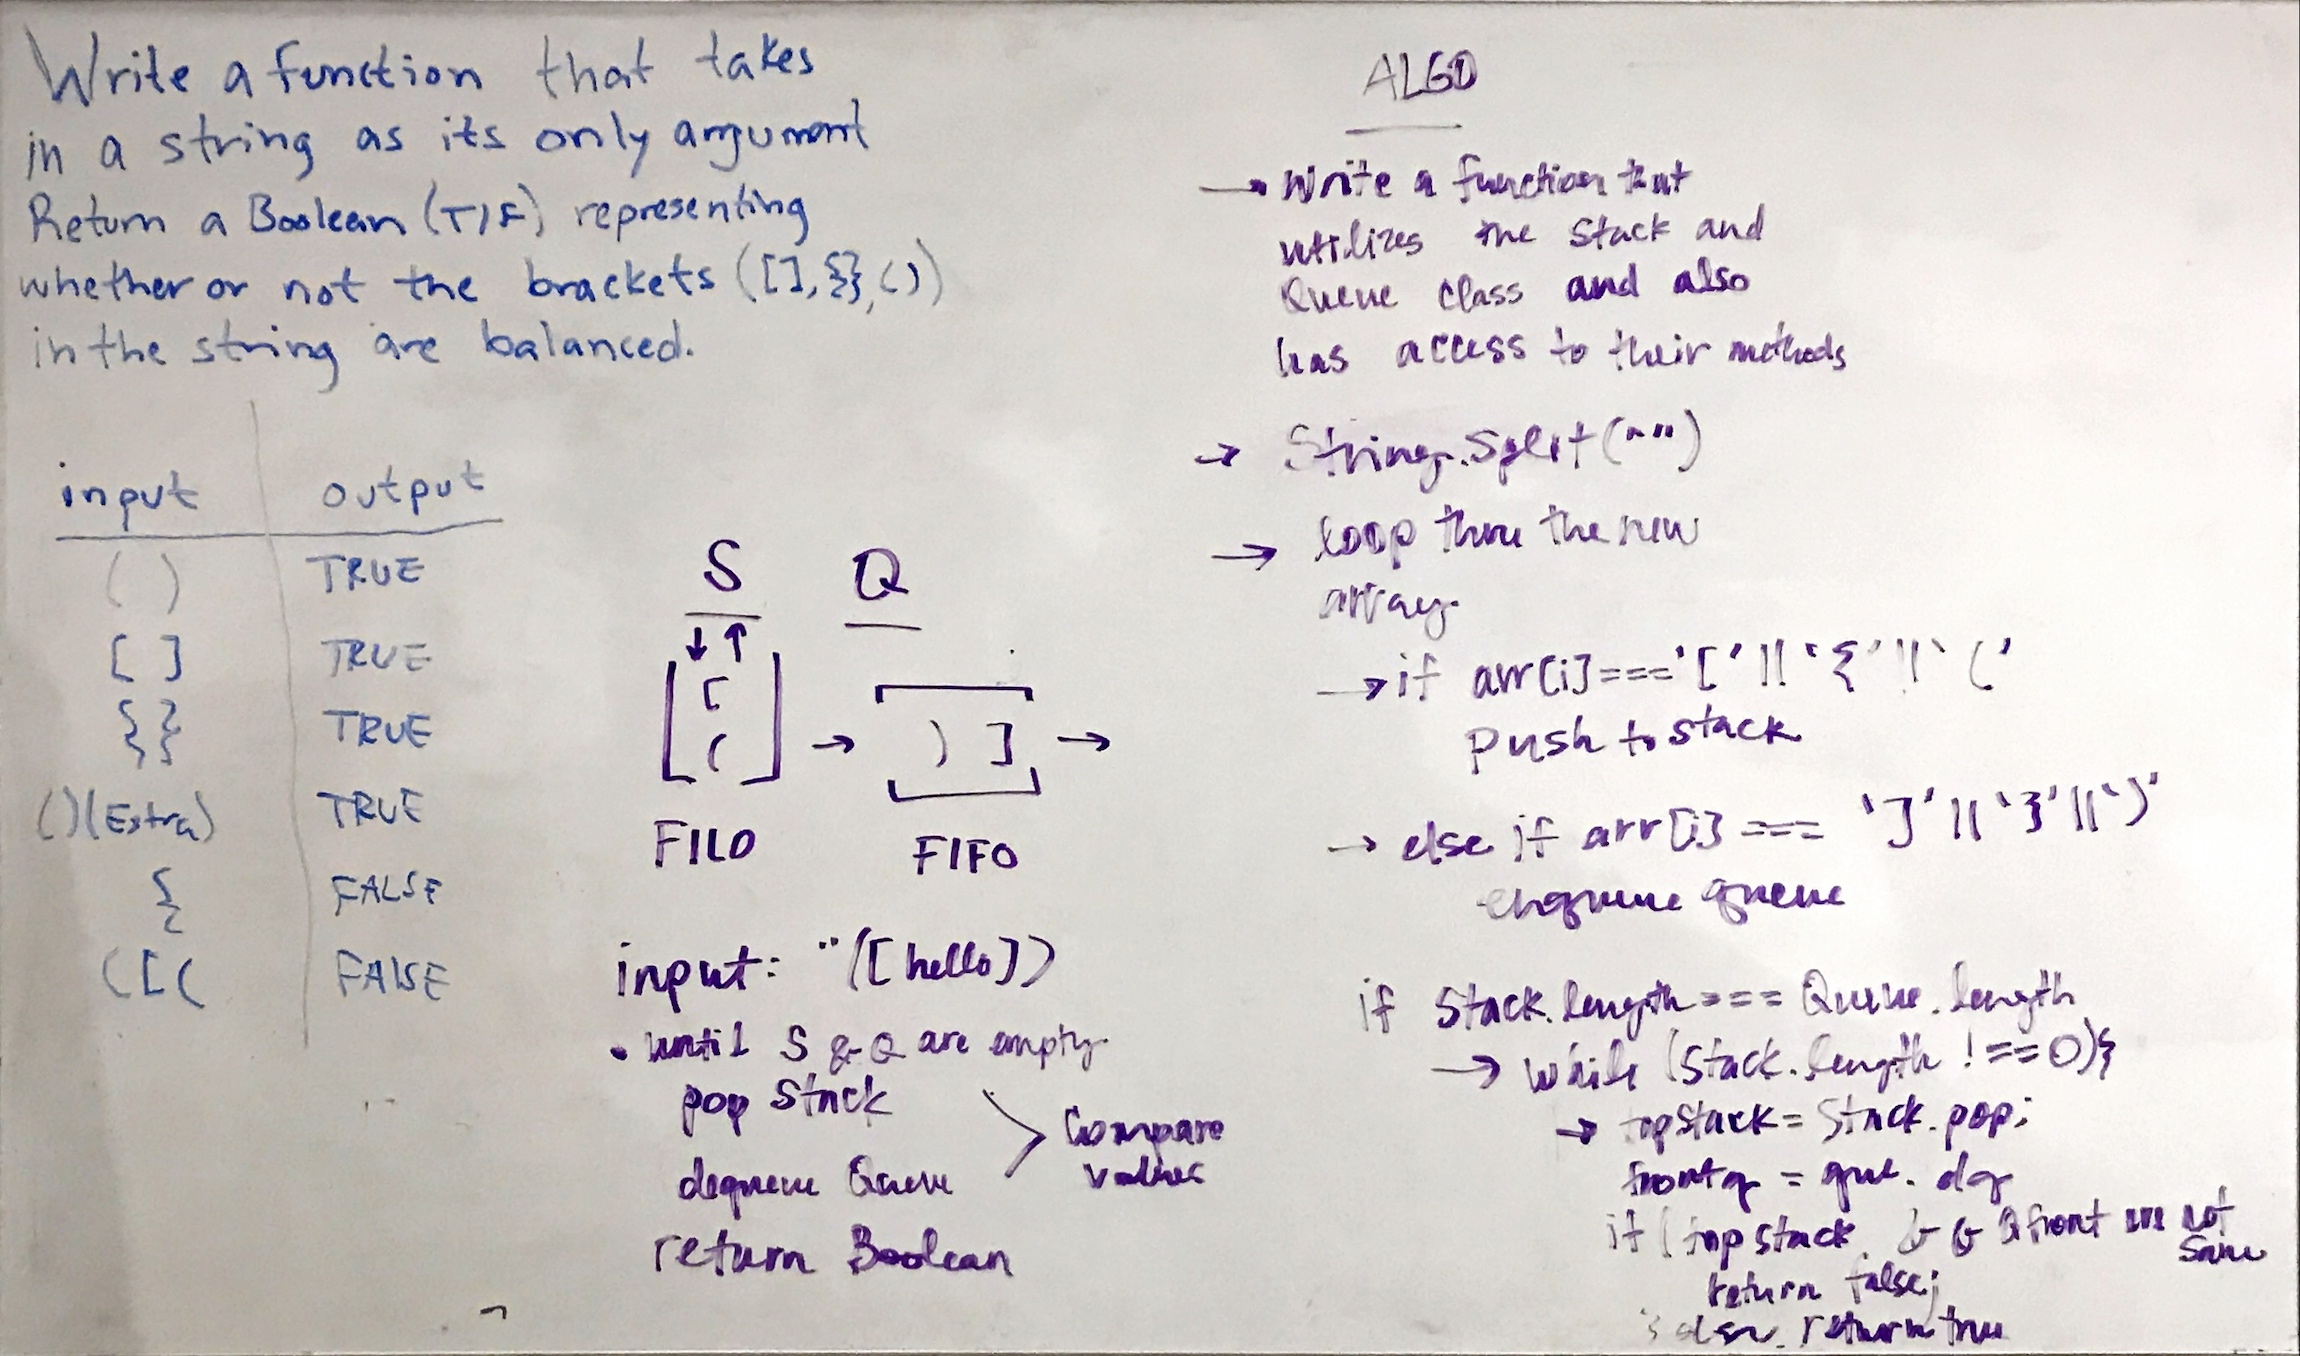 Write a function that takes
in a string as its only argument
Return a Boolean (T/F) representing
whether or not the brackets ([],{},())
in the string are balanced.
input output
() TRUE
[] TRUE
{} TRUE
()(Extra) TRUE
{ FALSE
([( FALSE
S Q
[
( ) ]
FILO FIFO
input: "([hello])
• until S & Q are empty
pop Stack
dequeue Queue
Compare
values
return Boolean
ALGO
→ Write a function that
utilizes the Stack and
Queue class and also
has access to their methods
→ String.split("")
→ loop thru the new
array.
→ if arr[i]==='[' || '{' || '('
push to stack
→ else if arr[i] === ']' || '}' || ')'
enqueue queue
if Stack.length === Queue.length
→ while (Stack.length !== 0){
→ topStack = Stack.pop;
frontq = que.dq
if (topstack && Qfront are not
same
return false;
} else return true